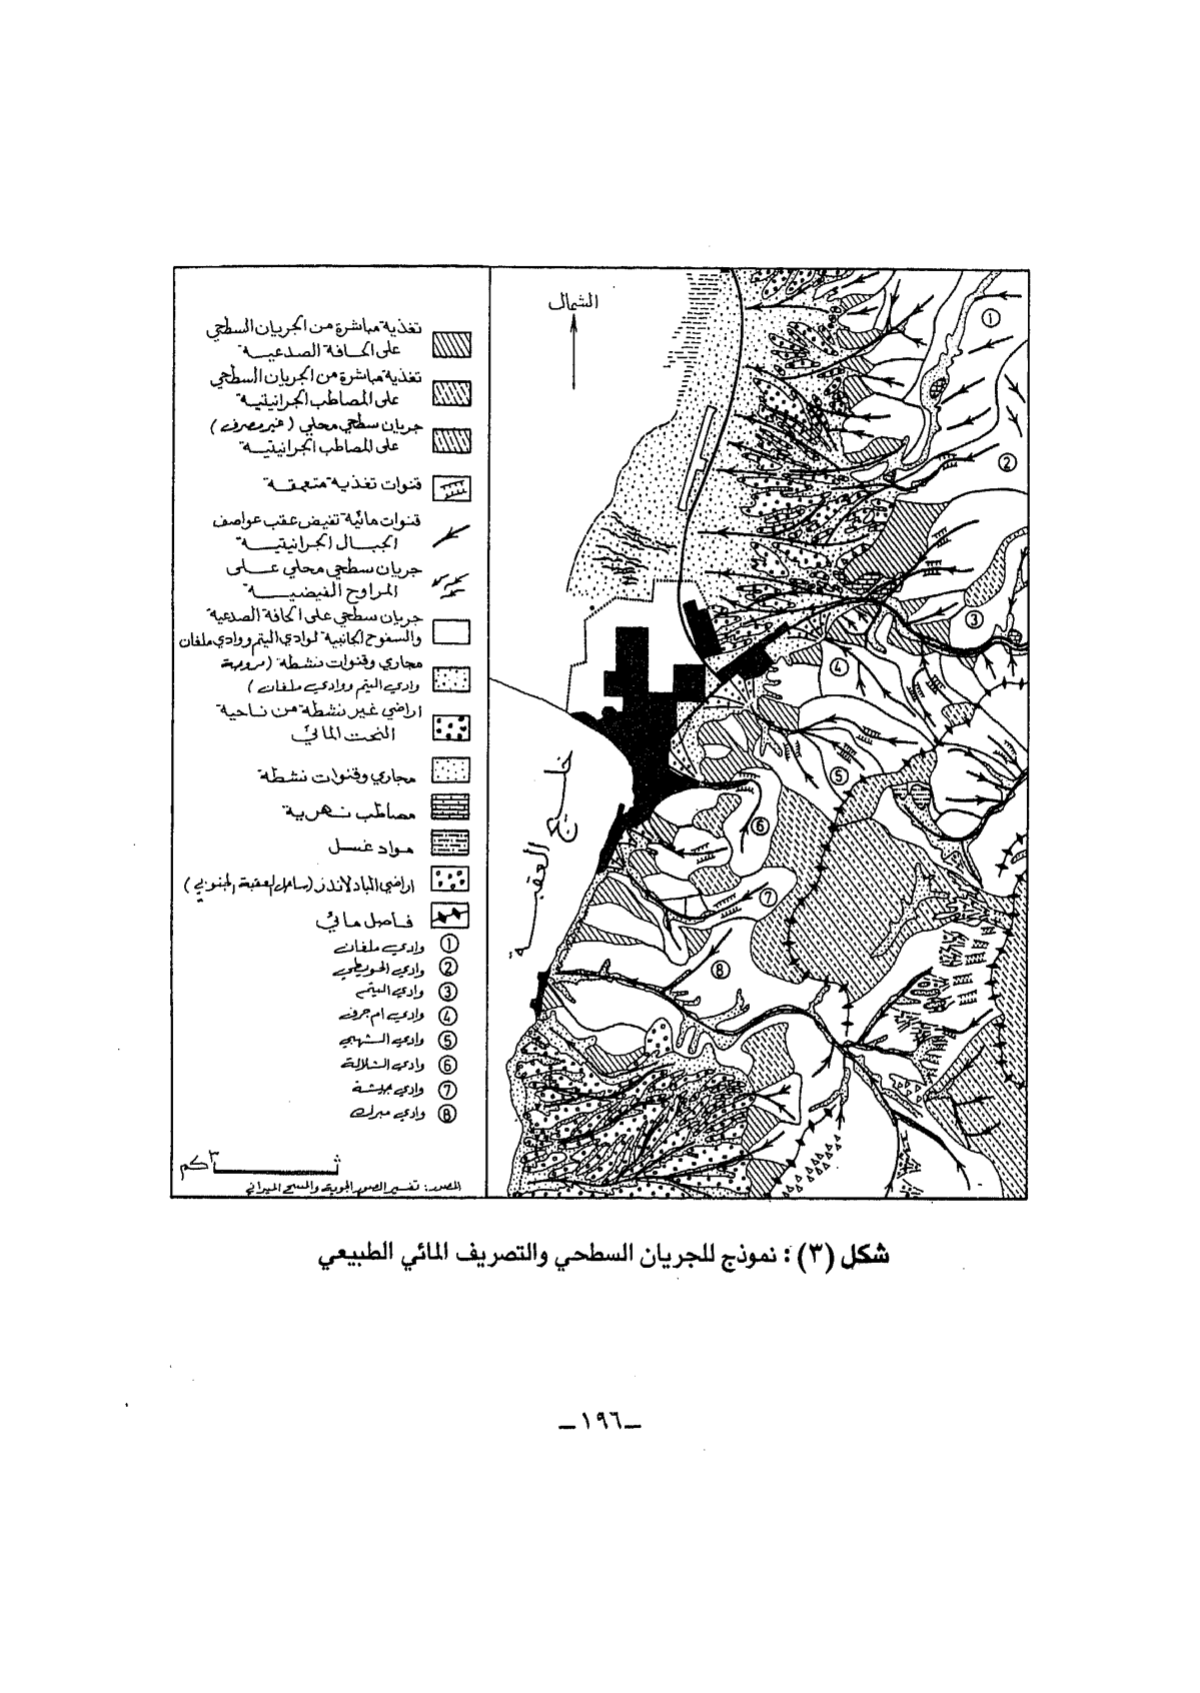 الشمال
تغذية مباشرة من الجريان السطحي
على الحافة الصدعية
تغذية مباشرة من الجريان السطحي
على المصاطب الجرانيتية
جريان سطحي محلي (غير مصرف)
على المصاطب الجرانيتية
قنوات تغذية متعمقة
قنوات مائية تفيض عقب عواصف
الجبال الجرانيتية
جريان سطحي محلي على
المراوح الفيضية
جريان سطحي على الحافة الصدعية
والسفوح الجانبية لوادي اليتم ووادي ملفان
مجاري وقنوات نشطة (مروحة
وادي اليتم ووادي ملفان)
اراضي غير نشطة من ناحية
النحت المائي
مجاري وقنوات نشطة
مصاطب نهرية
مواد غسل
اراضي البادلاندز (ساحل العقبة الجنوبي)
فاصل مائي
1 وادي ملفان
2 وادي الحويطي
3 وادي اليتم
4 وادي ام جرف
5 وادي الشهبي
6 وادي الشلالة
7 وادي جيشة
8 وادي مبرك
٣كم
المصدر: تفسير الصور الجوية والمسح الميداني
خليج العقبة
1
2
3
4
5
6
7
8
شكل (٣): نموذج للجريان السطحي والتصريف المائي الطبيعي
–١٩٦–